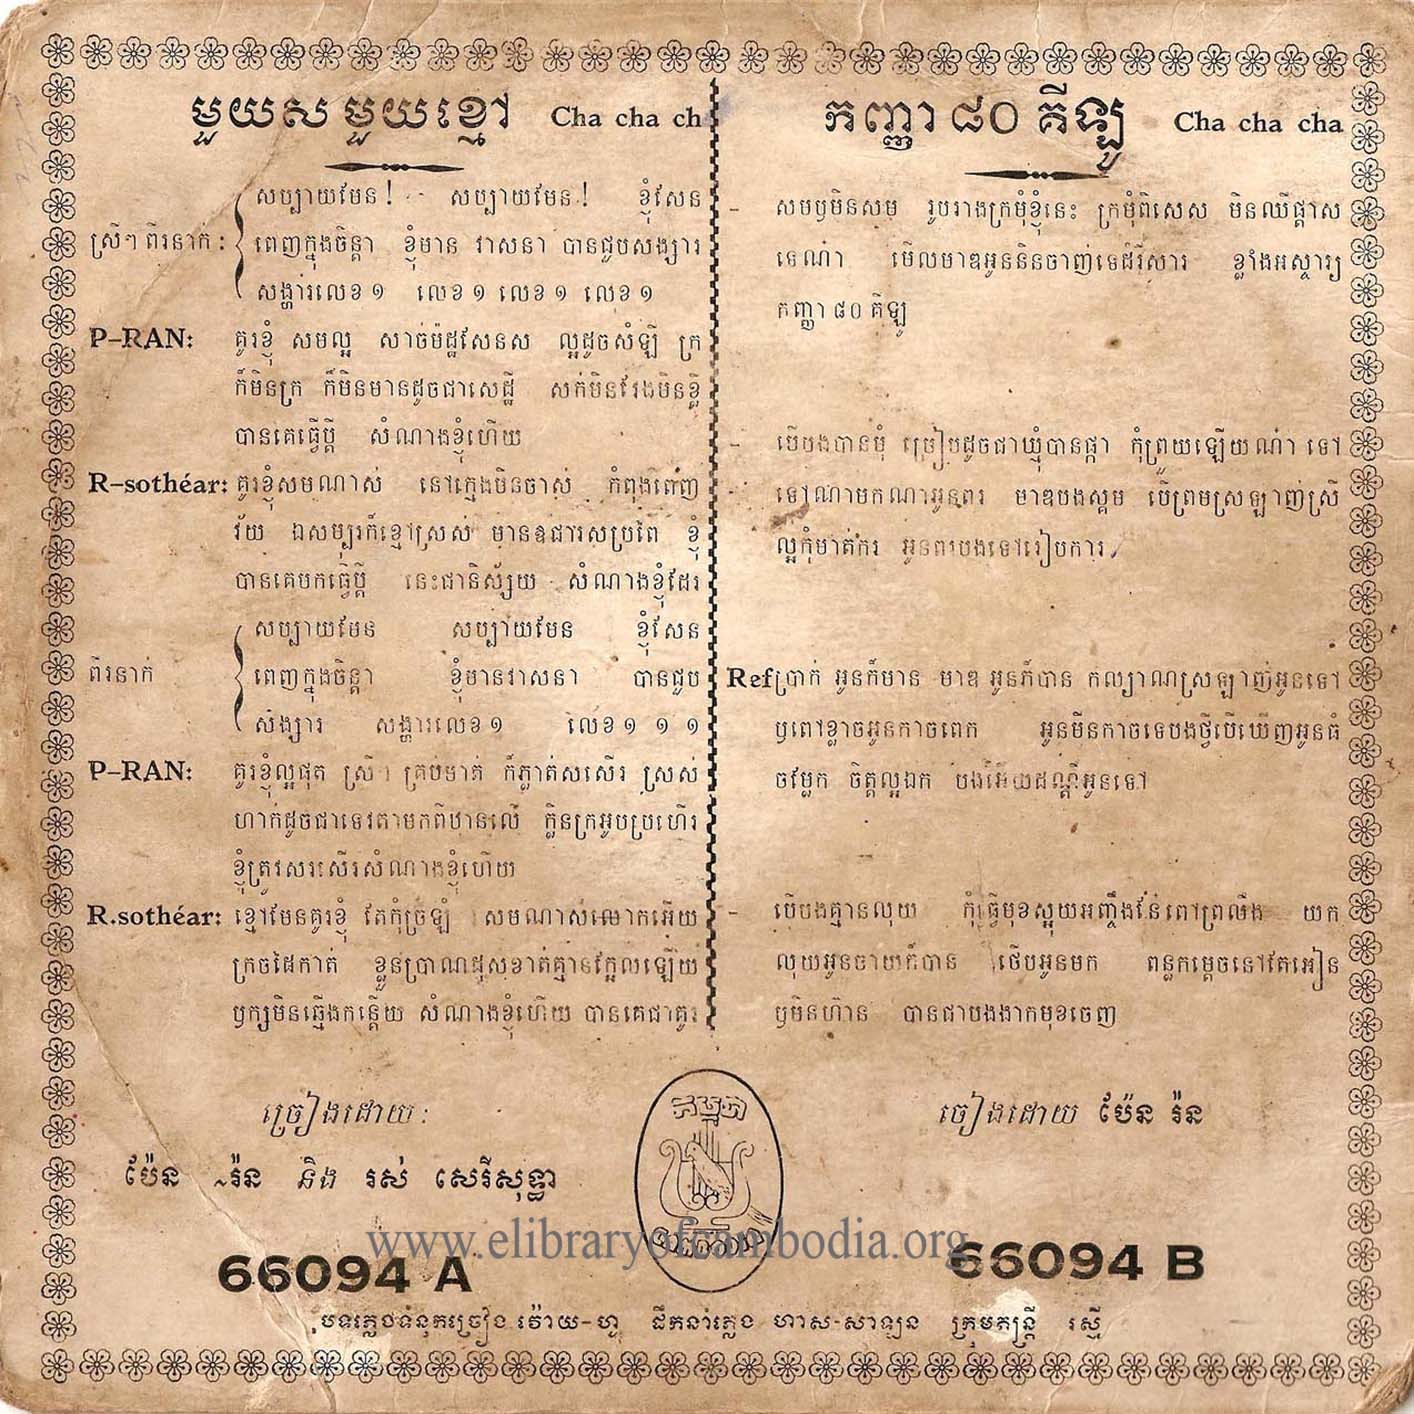 មួយស មួយខ្មៅ Cha cha ch
សប្បាយមែន! សប្បាយមែន! ខ្ញុំសែន
ស្រីៗ ពីរនាក់ : ពេញក្នុងចិន្តា ខ្ញុំមាន វាសនា បានជួបសង្សារ
សង្ហារលេខ ១ លេខ ១ លេខ ១ លេខ ១
P-RAN: គូរខ្ញុំ សមល្អ សាច់ម៉ដ្ឋសែនស ល្អដូចសំឡី ក្រ
ក៏មិនក្រ ក៏មិនមានដូចជាសេដ្ឋី សក់មិនវែងមិនខ្លី
បានគេធ្វើប្តី សំណាងខ្ញុំហើយ
R-sothéar: គូរខ្ញុំសមណាស់ នៅក្មេងមិនចាស់ កំពុងពេញ
វ័យ ឯសម្បុរក៏ខ្មៅស្រស់ មានឧជារសប្រពៃ ខ្ញុំ
បានគេមកធ្វើប្តី នេះជានិស្ស័យ សំណាងខ្ញុំដែរ
សប្បាយមែន សប្បាយមែន ខ្ញុំសែន
ពីរនាក់ ពេញក្នុងចិន្តា ខ្ញុំមានវាសនា បានជួប
សង្សារ សង្ហារលេខ ១ លេខ ១ ១ ១
P-RAN: គូរខ្ញុំល្អផុត ស្រីៗ គ្រប់មាត់ ក៏ភ្លាត់សសើរ ស្រស់
ហាក់ដូចជាទេវតាមកពីឋានលើ ក្លិនក្រអូបប្រហើរ
ខ្ញុំត្រូវសរសើរសំណាងខ្ញុំហើយ
R.sothéar: ខ្មៅមែនគូរខ្ញុំ តែកុំច្រឡំ សមណាស់លោកអើយ
ក្រចដៃកាត់ ខ្លួនប្រាណដុសខាត់គ្មានក្អែលឡើយ
ឫក្សមិនឆ្មើងកន្តើយ សំណាងខ្ញុំហើយ បានគេជាគូរ
ច្រៀងដោយ :
ប៉ែន រ៉ន និង រស់ សេរីសុទ្ធា
66094 A
កញ្ញា ៨០ គីឡូ Cha cha cha
- សមឫមិនសម រូបរាងក្រមុំខ្ញុំនេះ ក្រមុំពិសេស មិនឈឺផ្តាស
ទេណា៎ មើលមាឌអូននិនចាញ់ទេដំរីសារ ខ្លាំងអស្ចារ្យ
កញ្ញា ៨០ គីឡូ
- បើបងបានមុំ ច្រៀបដូចជាឃ្មុំបានផ្កា កុំព្រួយឡើយណា៎ ទៅ
ទៅណាមកណាអូនពរ មាឌបងស្គម បើព្រមស្រឡាញ់ស្រី
ល្អកុំមាត់ករ អូនពរបងទៅរៀបការ
Ref ប្រាក់ អូនក៏មាន មាឌ អូនក៏បាន កល្យាណស្រឡាញ់អូនទៅ
ឫពៅខ្លាចអូនកាចពេក អូនមិនកាចទេបងថ្វីបើឃើញអូនធំ
ចម្លែក ចិត្តល្អឯក បងអើយដណ្តឹអូនទៅ
- បើបងគ្មានលុយ កុំធ្វើមុខស្អុយអញ្ចឹងនែ៎ពៅព្រលឹង យក
លុយអូនចាយក៏បាន ថើបអូនមក ពន្លកម្តេចនៅតែអៀន
ឫមិនហ៊ាន បានជាបងងាកមុខចេញ
ចៀងដោយ ប៉ែន រ៉ន
66094 B
កម្ពុជា
www.elibraryofcambodia.org
បទភ្លេងទំនុកច្រៀង វ៉ោយ-ហូ ដឹកនាំភ្លេង ហាស-សាឡន ក្រុមតន្ត្រី រស្មី